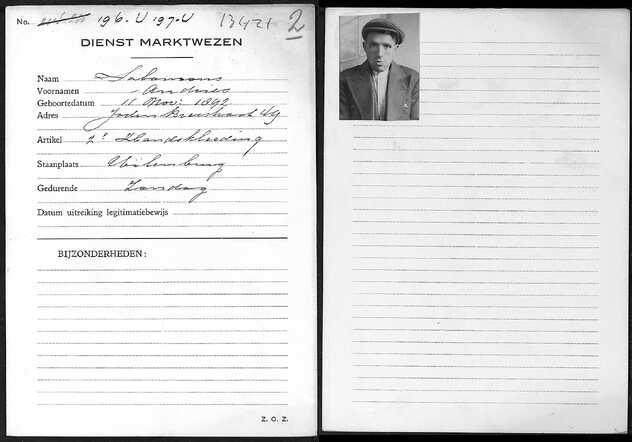 No. 196.U 197.U 13421 2
DIENST MARKTWEZEN
Naam
Voornamen Andries
Geboortedatum 11 Nov: 1892
Adres Joden Breestraat 49
Artikel 2e Handskleeding
Staanplaats Uilenburg
Gedurende Zondag
Datum uitreiking legitimatiebewijs
BIJZONDERHEDEN:
Z. O. Z.